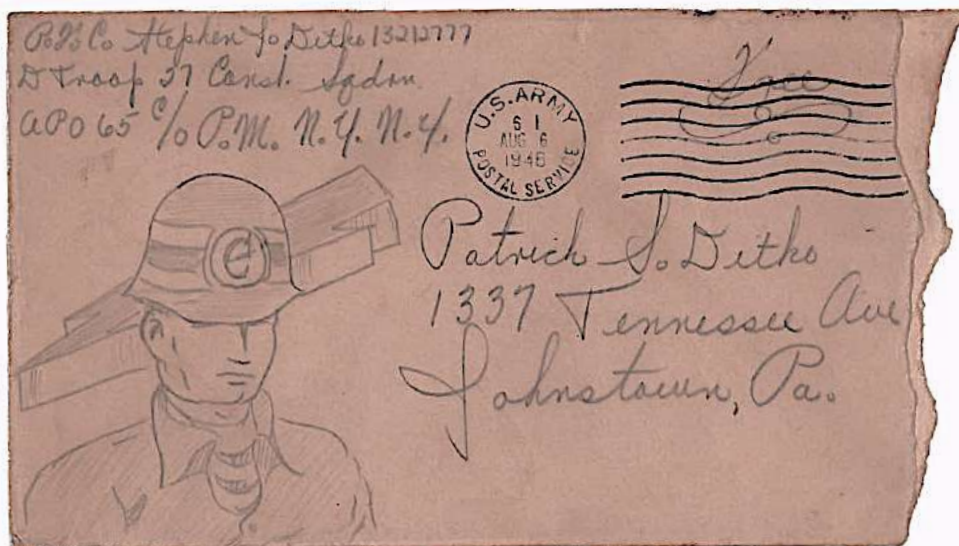 Pvt. Co Stephen J. Ditko 13212777
D Troop 27 Const. Sqdrn
APO 65 c/o P.M. N.Y. N.Y.
U.S. ARMY
6 1
AUG 6
1946
POSTAL SERVICE
Free
C
Patrick S. Ditko
1337 Tennessee Ave
Johnstown, Pa.